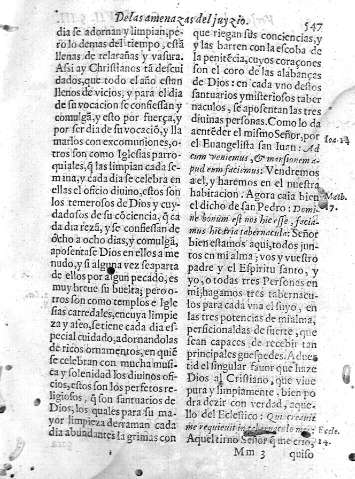 De las amenazas del juyzio.
547
dia se adornan y limpian, pero
lo demas del tiempo, està
llenas de telarañas y vasura.
Assi ay Christianos tã descui
dados, que todo el año estan
llenos de vicios, y para el dia
de su vocacion se confiessan y
comulgã, y esto por fuerça, y
por ser dia de su vocaciõ, y lla
marlos con excomuniones, o
tros son como Iglesias parro-
quiales, q̃ las limpian cada se
mina, y cada dia se celebra en
ellas el oficio diuino, estos son
los temerosos de Dios y cuy-
dadosos de su cõciencia, q̃ ca
da dia rezã, y se confiessan de
ocho a ocho dias, y comulgã,
aposentase Dios en ellos a me
nudo, y si alguna vez se aparta
de ellos por algun pecado, es
muy breue su buelta; pero o-
tros son como templos e Igle
sias catredales, en cuya limpie
za y asseo, se tiene cada dia es-
pecial cuidado, adornandolas
de ricos ornamentos, en quiẽ
se celebran con mucha musi-
ca y solenidad los diuinos ofi-
cios, estos son los perfetos re-
ligiosos, q̃ son santuarios de
Dios, los quales para su ma-
yor limpieza derraman cada
dia abundantes lagrimas con
que riegan sus conciencias, y
y las barren con la escoba de
la penitẽcia, cuyos coraçones
son el coro de las alabanças
de Dios: en cada vno destos
santuarios y misteriosos taber
naculos, se aposentan las tres
diuinas personas. Como lo da
a entẽder el mismo Señor, por
el Euangelista san Iuan: Ad
Ioa. 14
eum veniemus, & mansionem a-
pud eum faciemus: Vendremos
a el, y haremos en el nuestra
habitacion. Agora caia bien
Matth.
el dicho de san Pedro: Domi-
17.
ne bonum est nos hic esse, facia-
mus hic tria tabernacula: Señor
bien estamos aqui, todos jun
tos en mi alma; vos y vuestro
padre y el Espiritu santo, y
yo, o todas tres Personas en
mi; hagamos tres tabernacu
los para cada vna el suyo, en
las tres potencias de mi alma,
perficionaldas de suerte, que
sean capaces de recebir tan
principales guespedes. Aduer
tid el singular fauor que haze
Dios al Christiano, que viue
pura y limpiamente, bien po
dra dezir con verdad, aque-
llo del Eclesiico: Qui creauit
me requieuit in tabernaculo meo,
Eccle.
Aquel tirno Señor q̃ me crio,
24.
Mm 3
quiso